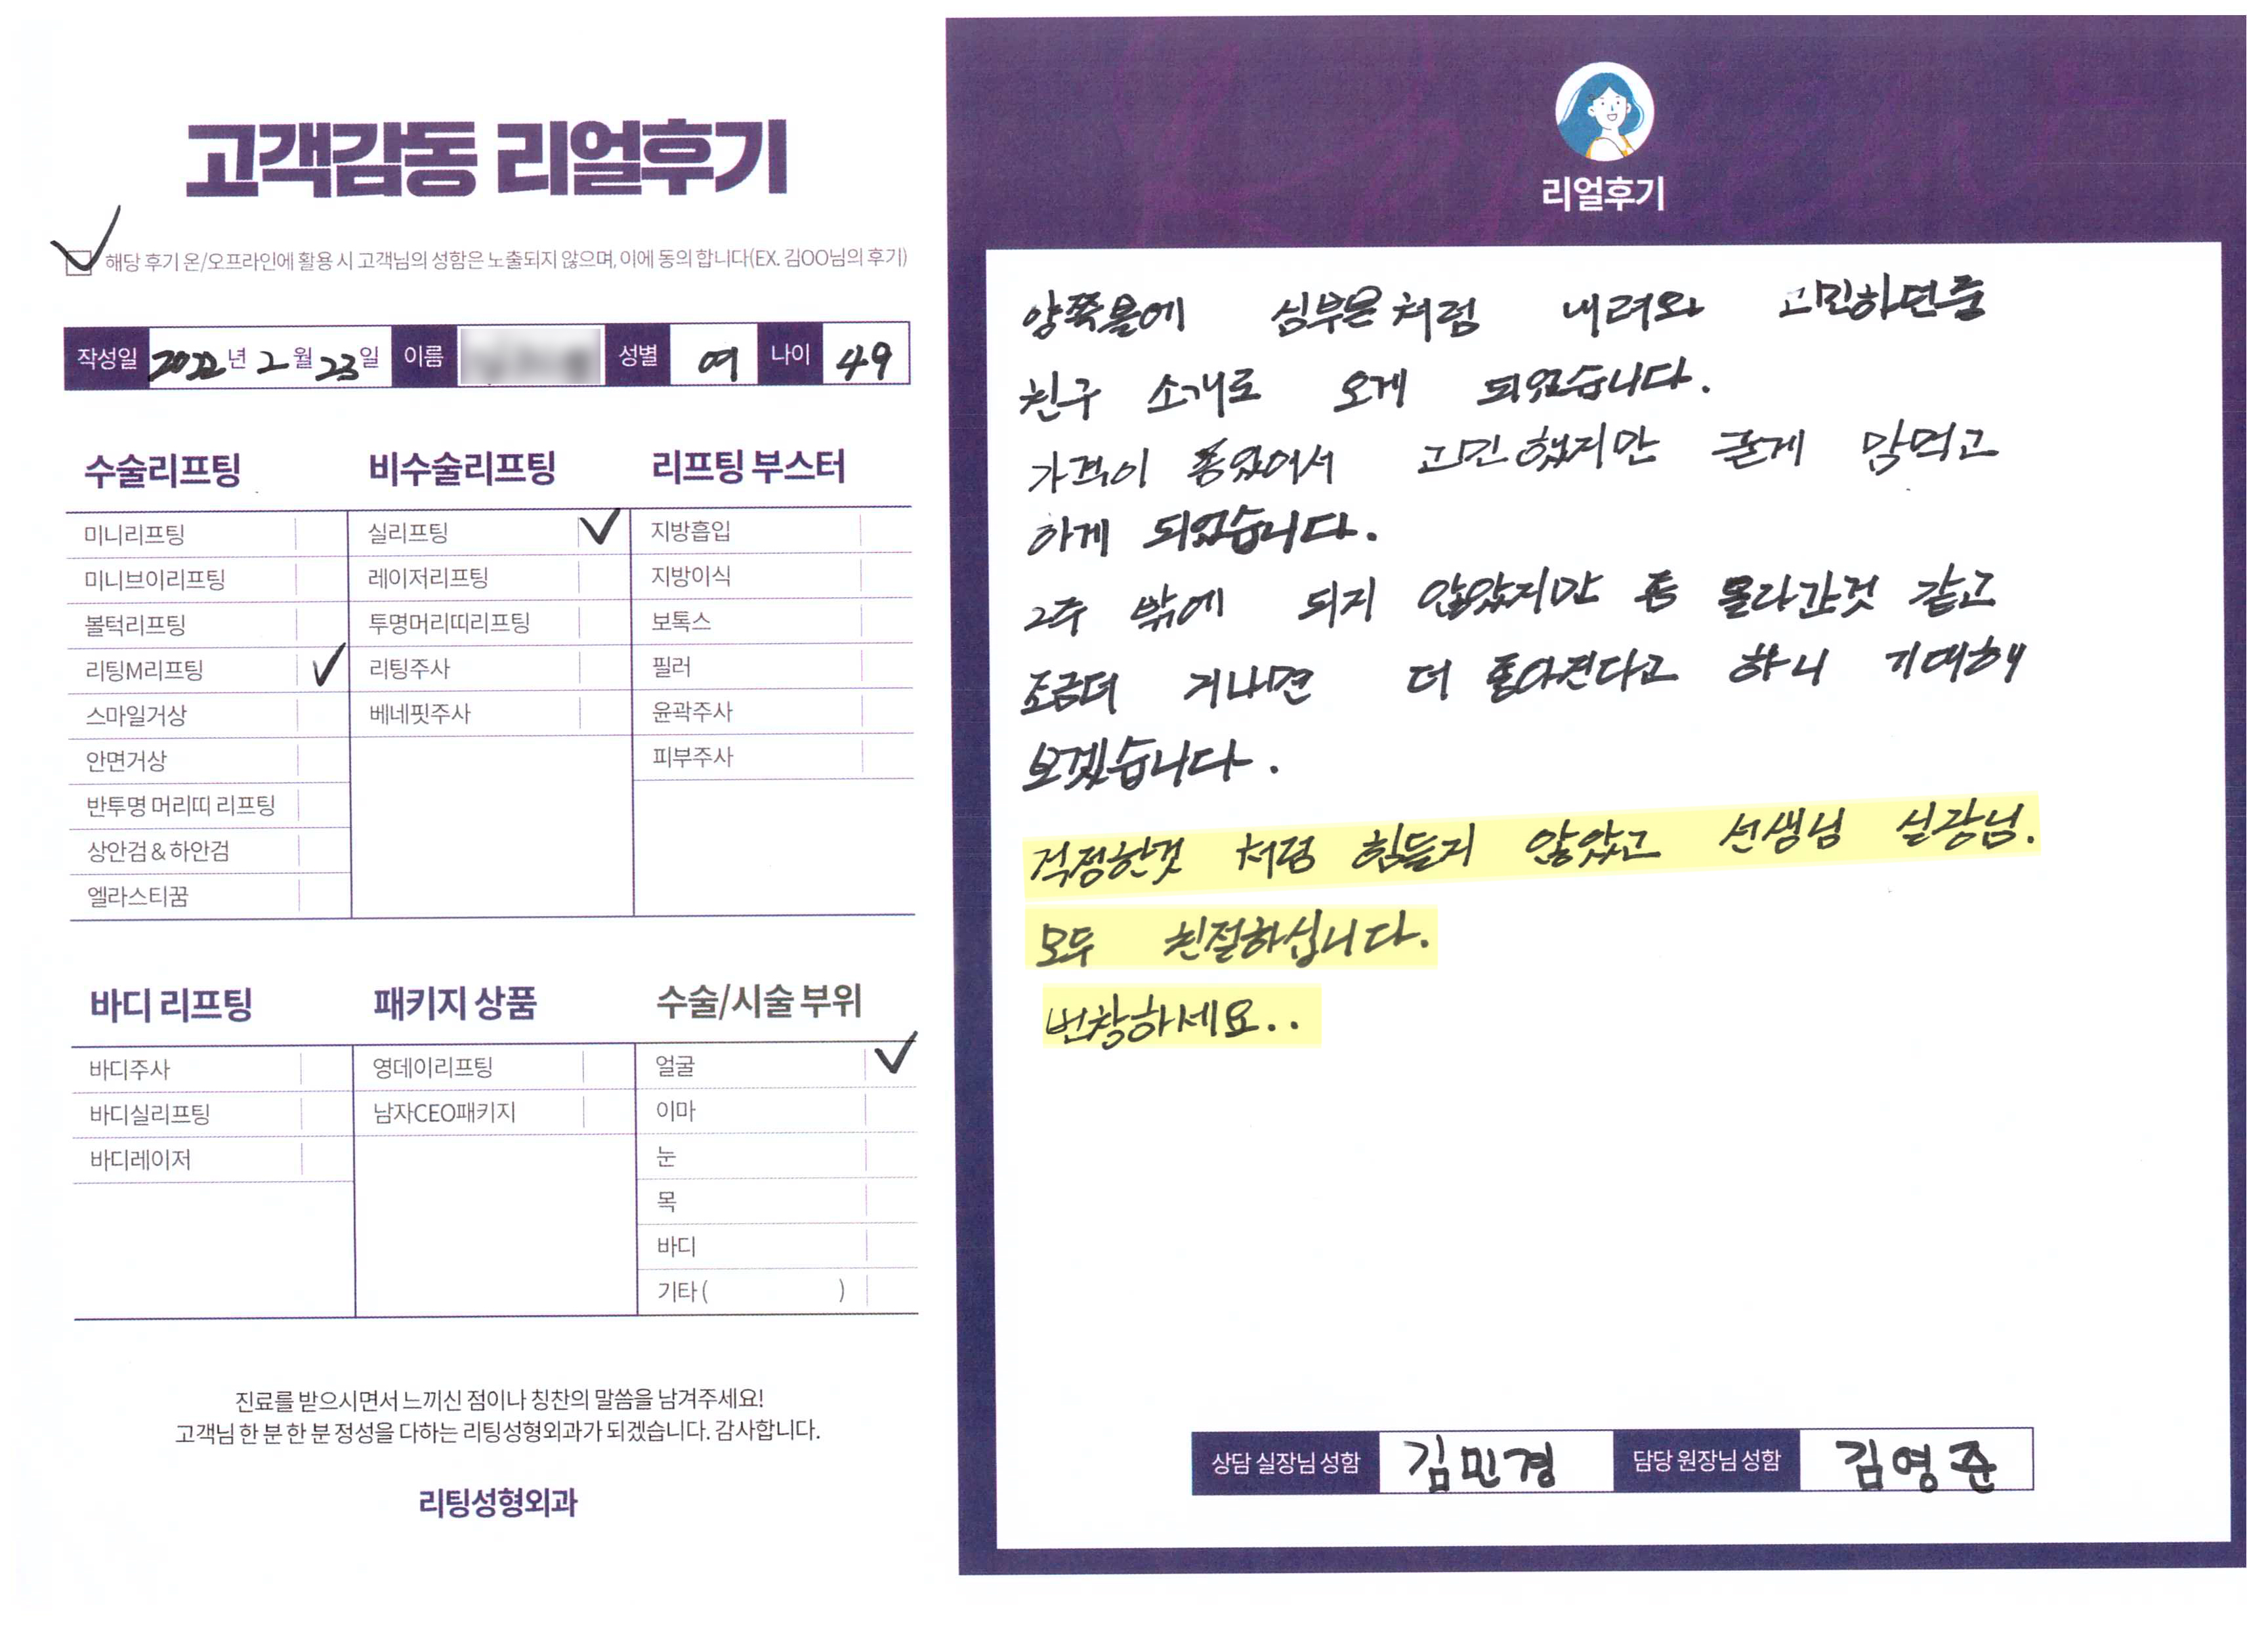 고객감동 리얼후기
해당 후기 온/오프라인에 활용 시 고객님의 성함은 노출되지 않으며, 이에 동의 합니다(EX. 김OO님의 후기)
작성일 2022년 2월 23일 이름 성별 여 나이 49
수술리프팅
미니리프팅
미니브이리프팅
볼턱리프팅
리팅M리프팅
스마일거상
안면거상
반투명 머리띠 리프팅
상안검 & 하안검
엘라스티꿈
비수술리프팅
실리프팅
레이저리프팅
투명머리띠리프팅
리팅주사
베네핏주사
리프팅 부스터
지방흡입
지방이식
보톡스
필러
윤곽주사
피부주사
바디 리프팅
바디주사
바디실리프팅
바디레이저
패키지 상품
영데이리프팅
남자CEO패키지
수술/시술 부위
얼굴
이마
눈
목
바디
기타 ( )
진료를 받으시면서 느끼신 점이나 칭찬의 말씀을 남겨주세요!
고객님 한 분 한 분 정성을 다하는 리팅성형외과가 되겠습니다. 감사합니다.
리팅성형외과
리얼후기
양쪽볼에 심부볼처럼 내려와 고민하던중
친구 소개로 오게 되었습니다.
가격이 좀있어서 고민했지만 굳게 맘먹고
하게 되었습니다.
2주 밖에 되지 않았지만 좀 올라간것 같고
조금더 지나면 더 좋아진다고 하니 기대해
보겠습니다.
걱정한것 처럼 힘들지 않았고 선생님 실장님.
모두 친절하십니다.
번창하세요..
상담 실장님 성함 김민경 담당 원장님 성함 김영준